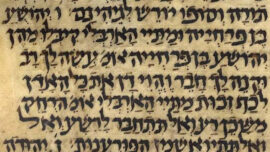 תורה וסופו יורש לגיהינם יהושע
בן פרחייה ומתיי הארבלי קיבלו מהן
יהושע בן פרחייה אומ עשה לך רב
וקנה לך חבר והוי דן את כל האדן
לכף זכות מתיי הארבלי אומ הרחק
משכן רע ואל תתחבר לרשע ואל
מן הפורענות